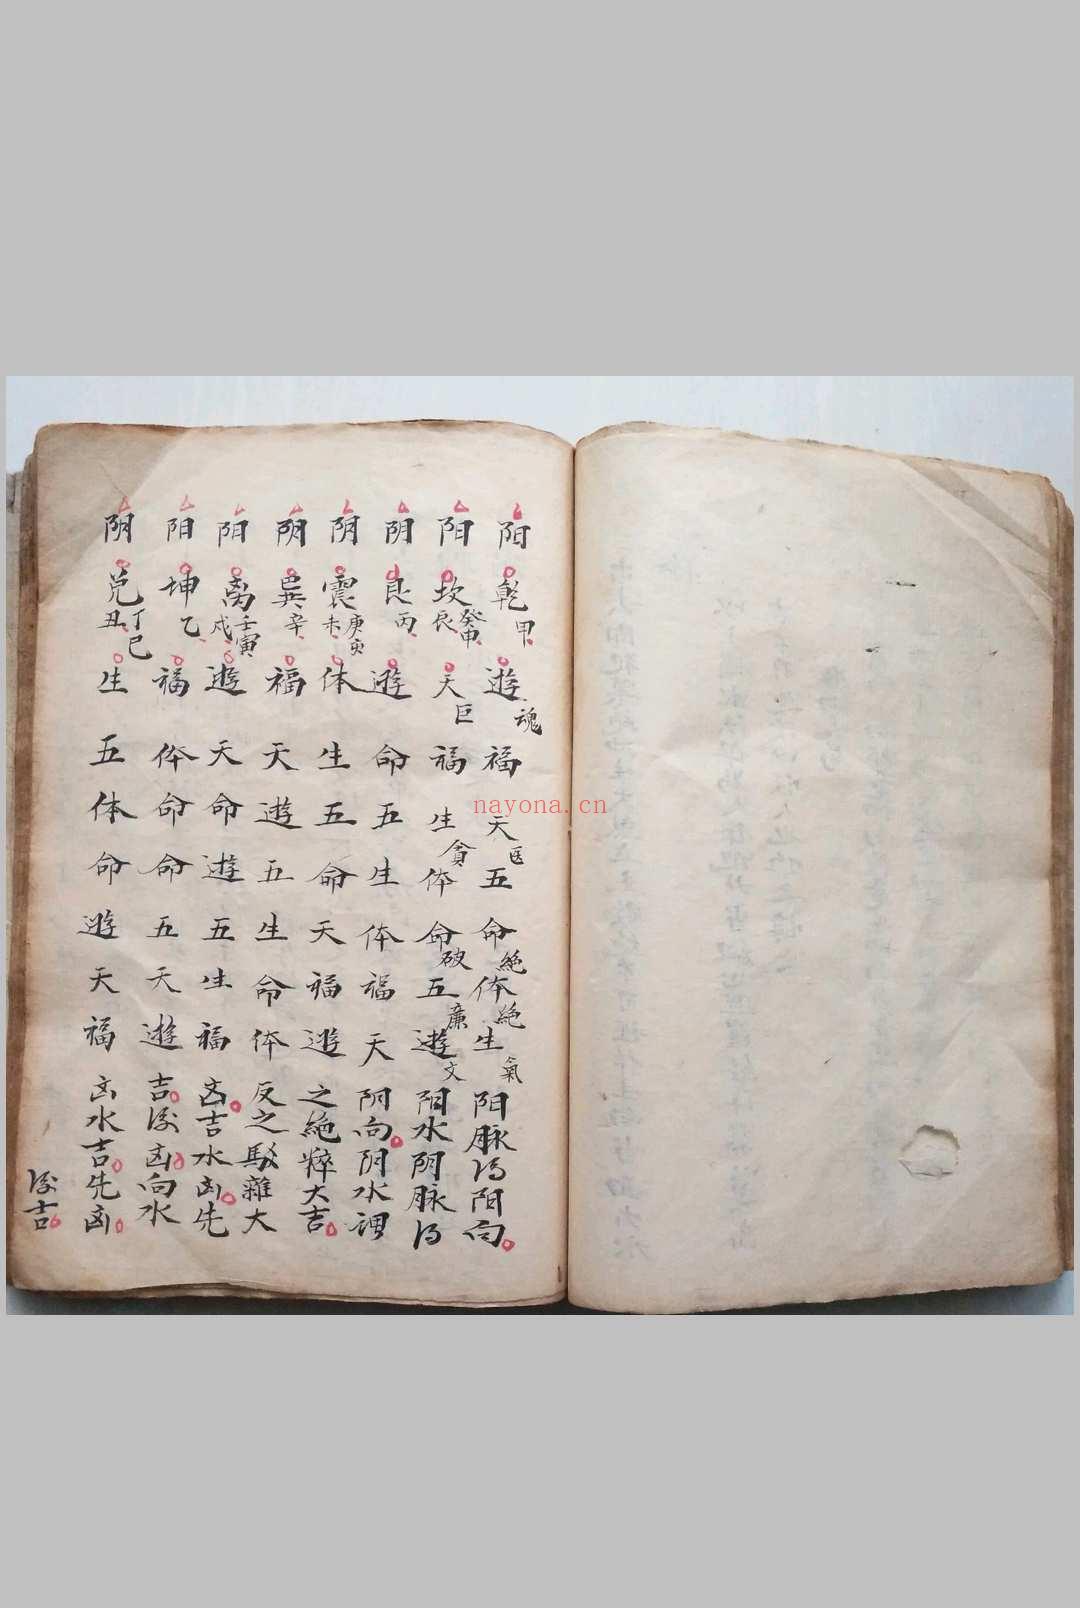 阳乾甲遊魂福天医五命絕体絕生氣阳脉得阳向
阳坎癸申辰天巨福生貪体命破五廉遊文阳水阴脉得
阴艮丙遊命五生体福天阴向阴水謂
阴震庚亥未体生五命天福遊之絕粹大吉
阴巽辛福天遊五生命体反之駁雜大
阳离壬寅戌遊天命遊五生福凶吉水凶先
阳坤乙福体命命五天遊吉後凶向水
阴兑丁巳丑生五体命遊天福凶水吉先凶
後吉
nayona.cn